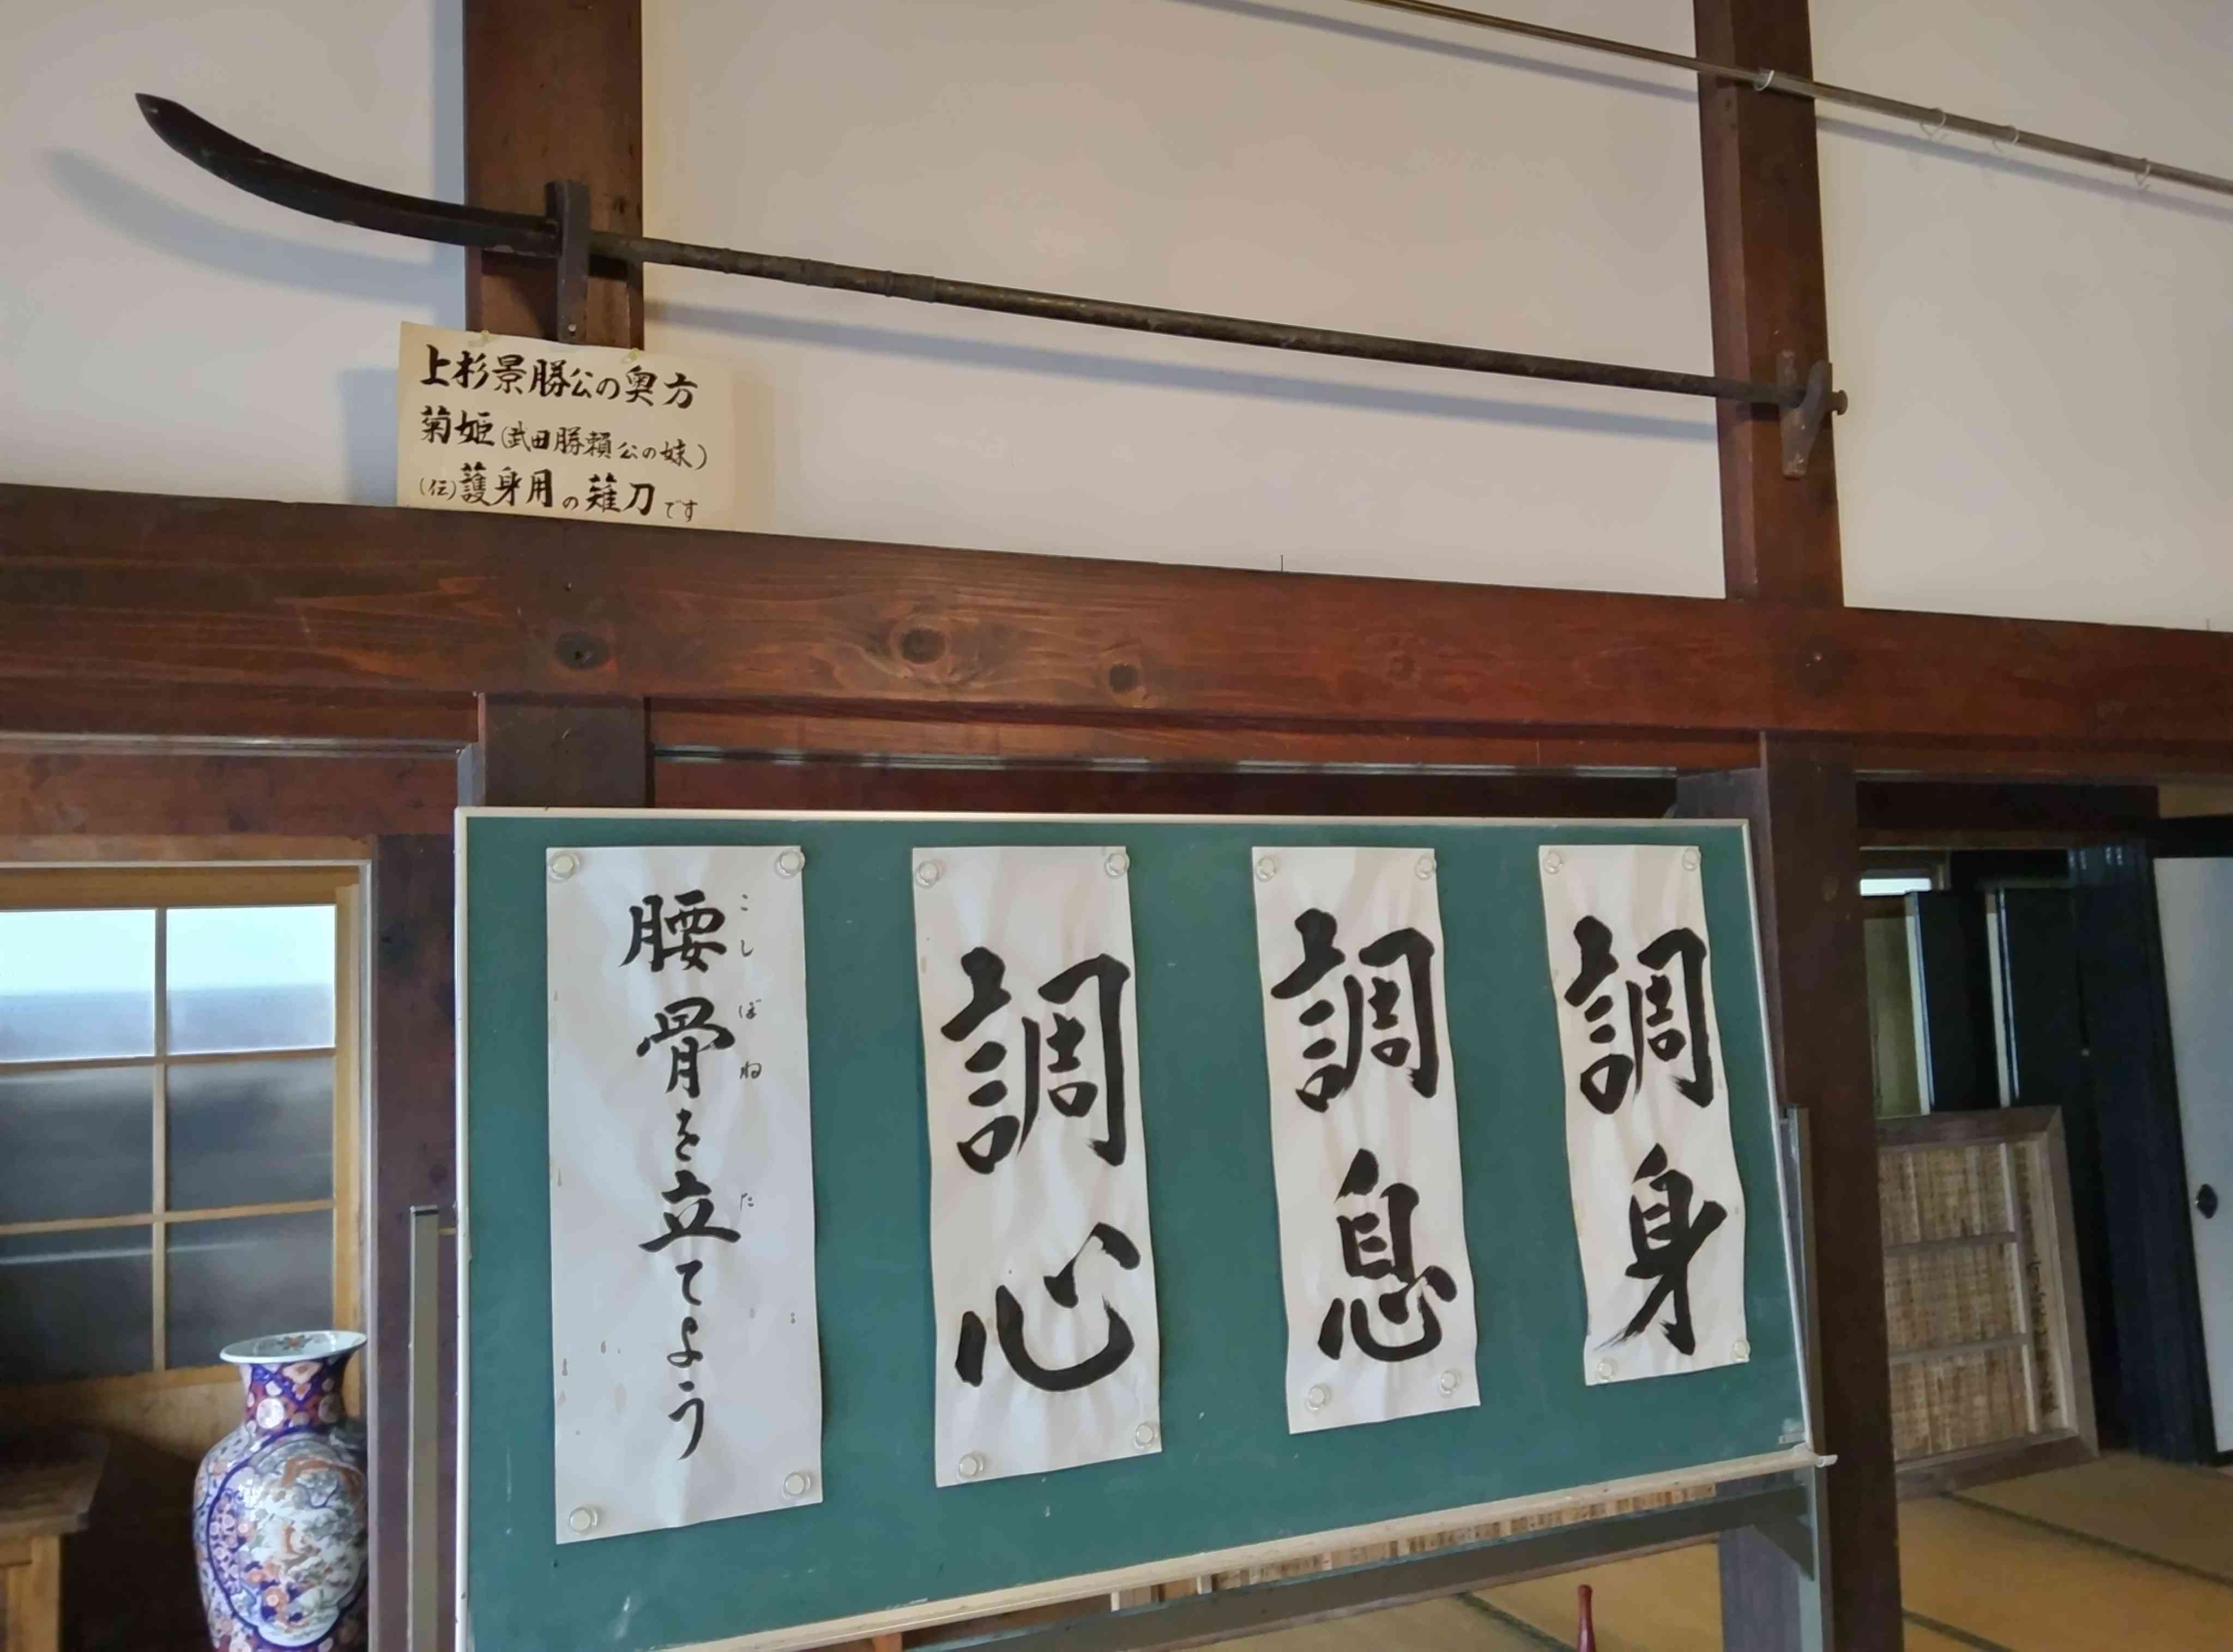 上杉景勝公の奥方
菊姫(武田勝頼公の妹)
(伝)護身用の薙刀です
調身
調息
調心
腰骨を立てよう
こしぼね
た